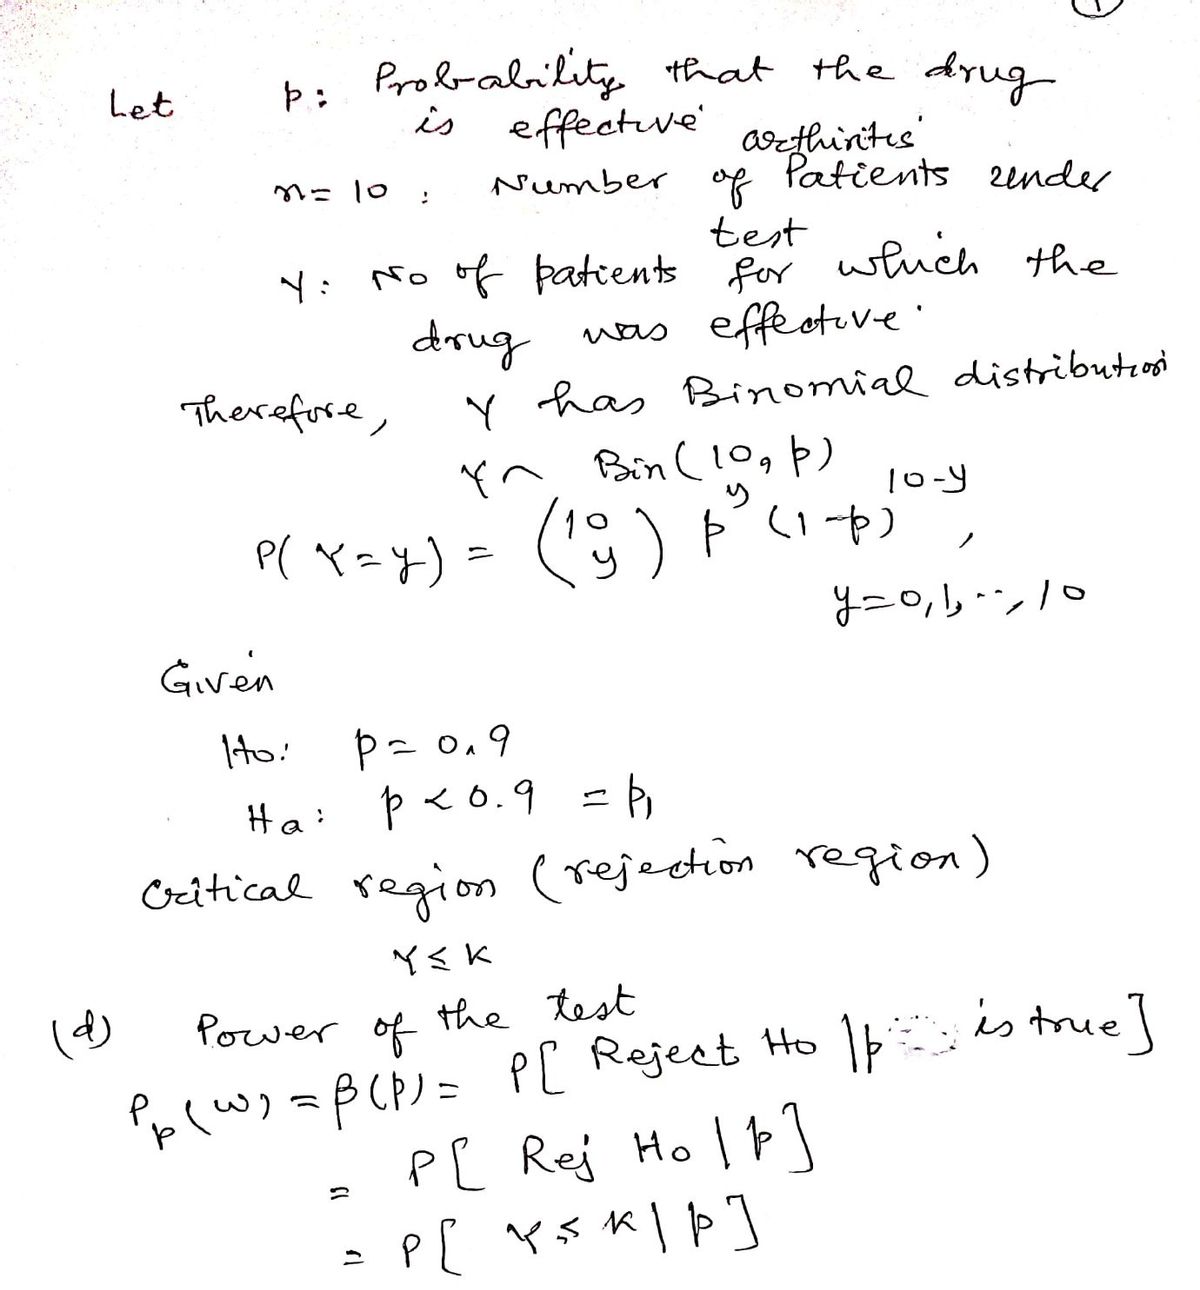 Let p: Probability that the drug
is effective arthirites
n = 10 : Number of Patients under
test
Y: No of patients for which the
drug was effective.
Therefore, Y has Binomial distribution
Y ~ Bin(10, p)
P(Y=y) = (10 y) p^y (1-p)^10-y,
y=0,1,..,10
Given
Ho: p = 0.9
Ha: p < 0.9 = p1
Critical region (rejection region)
Y ≤ K
(d) Power of the test
Pp(w) = β(p) = P[ Reject Ho | p is true]
= P[ Rej Ho | p]
= P[ Y ≤ K | p]